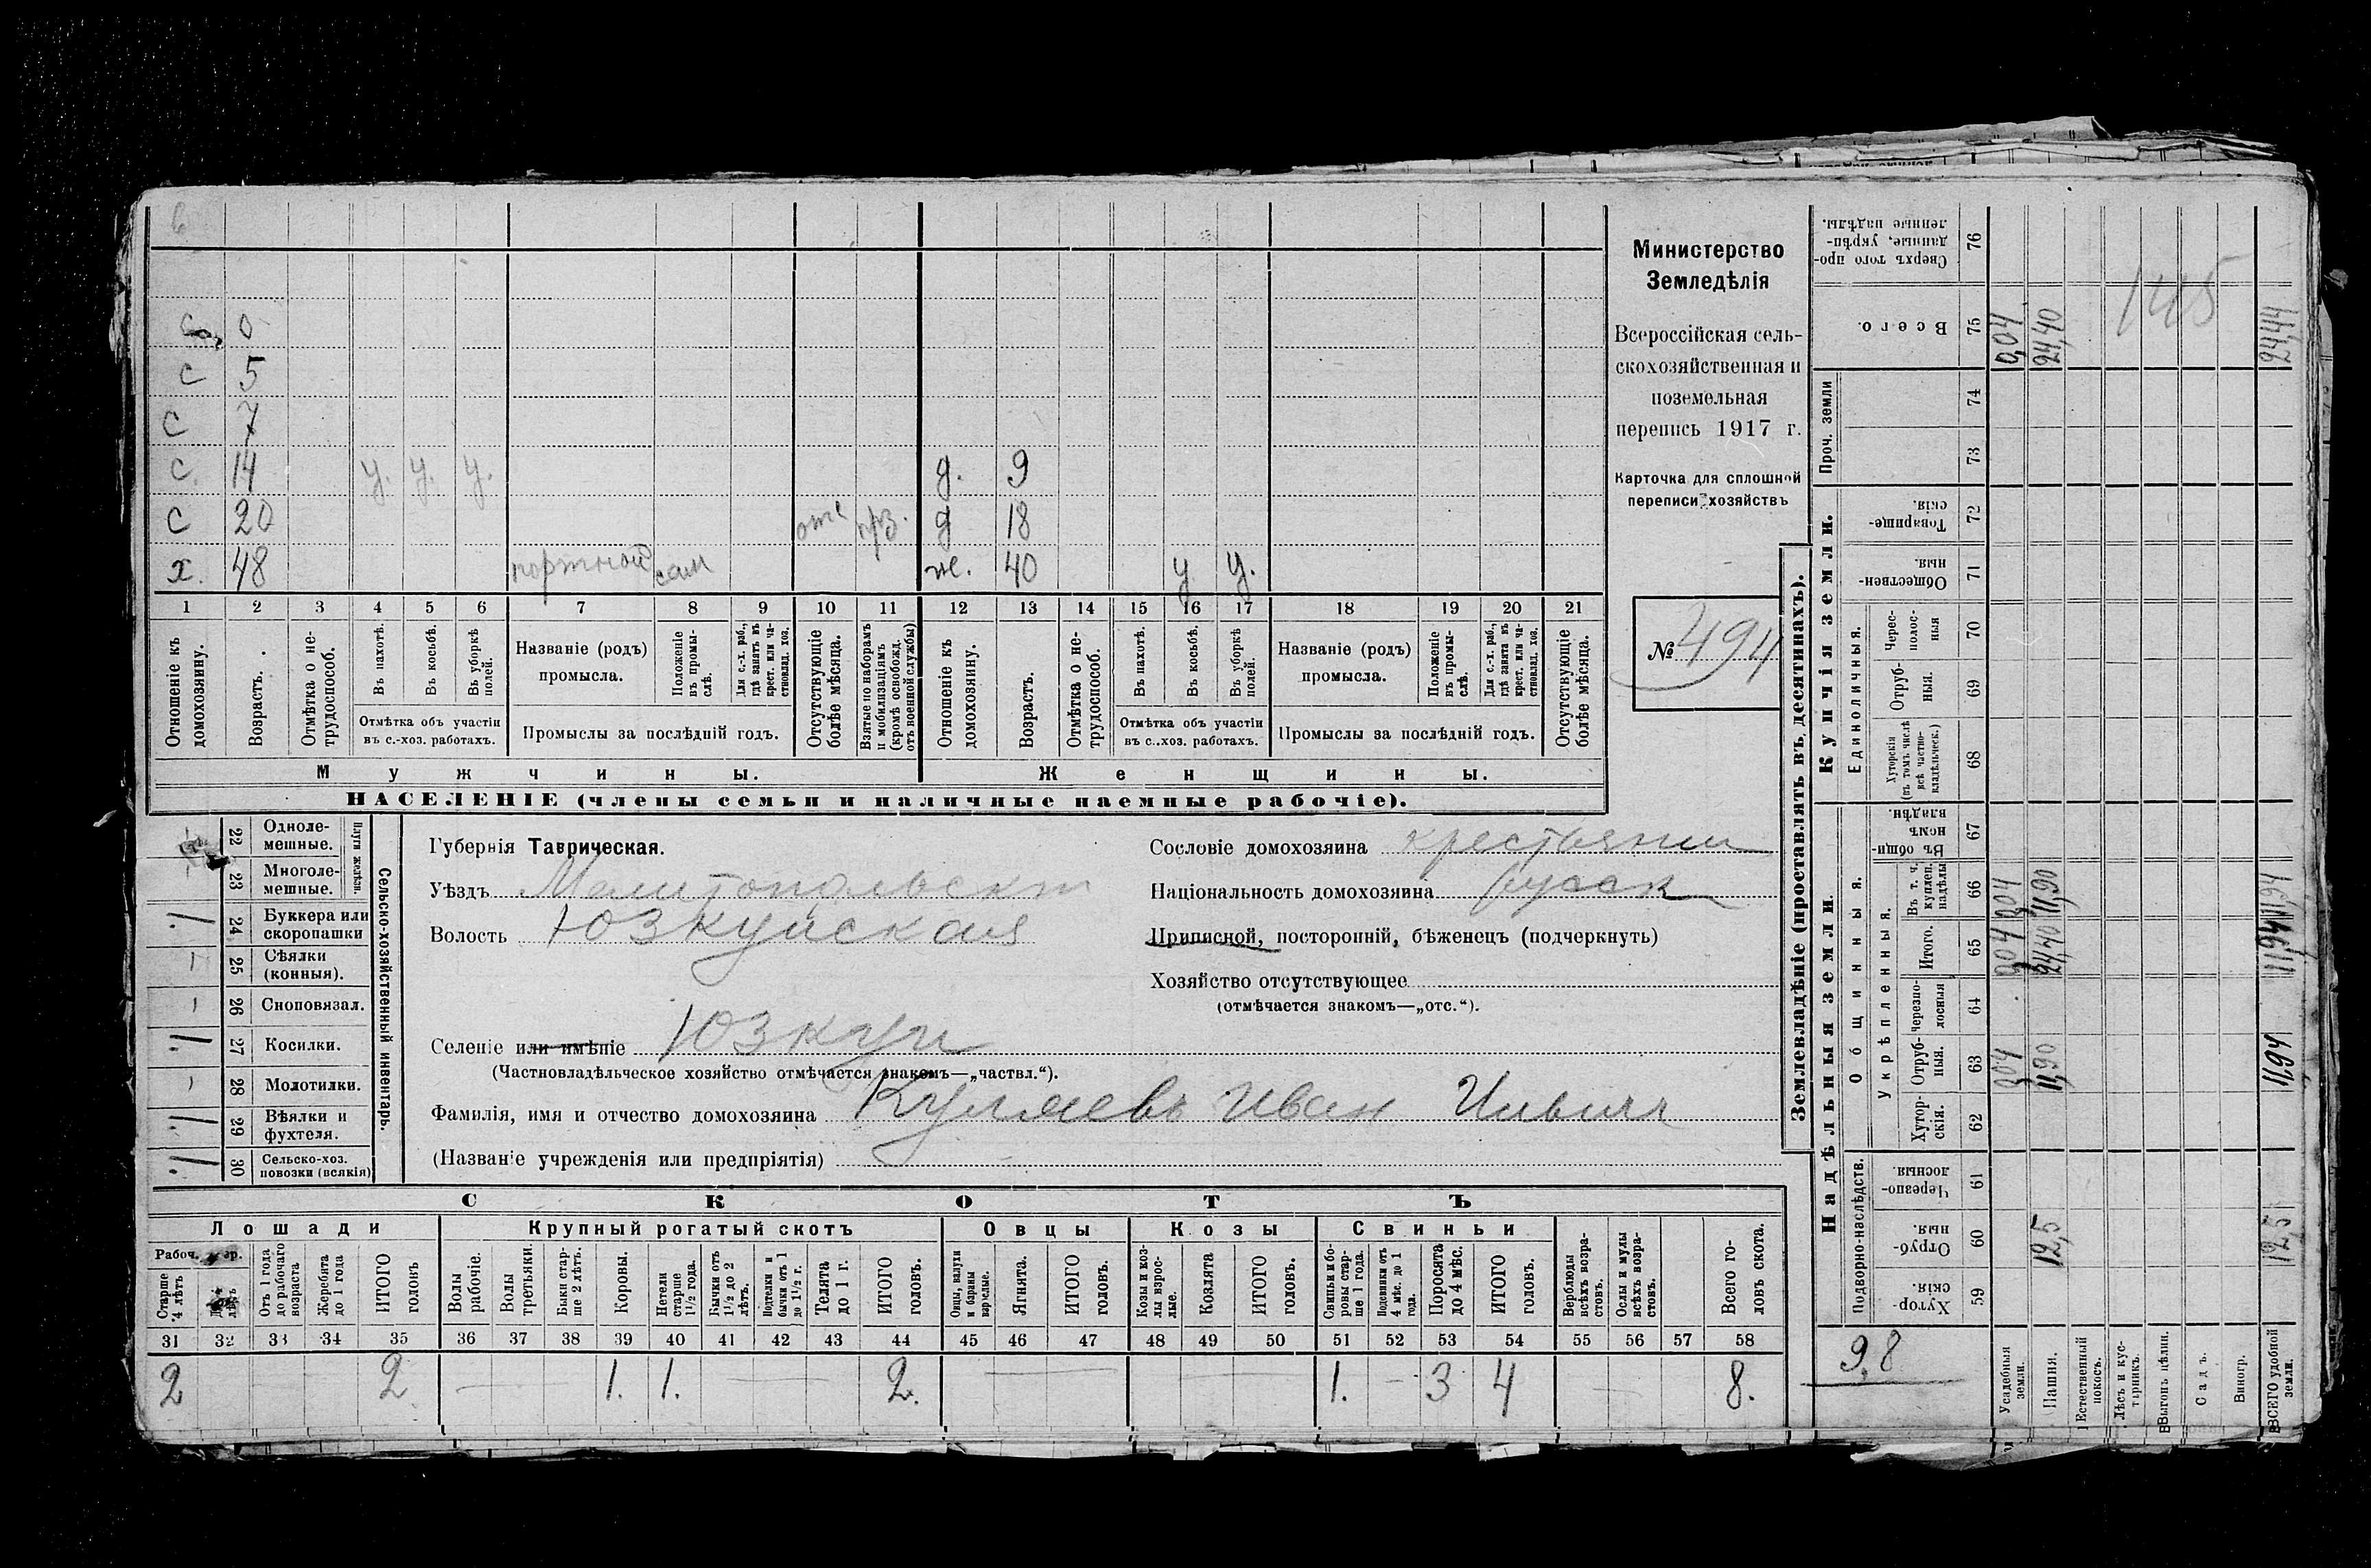 6
с 0
с 5
с 7
с. 14 у. у. у. д. 9
с 20 отс прз. д 18
х. 48 портной сам ж. 40 у у.
1 2 3 4 5 6 7 8 9 10 11 12 13 14 15 16 17 18 19 20 21
Отношеніе къ домохозяину.
Возрастъ.
Отмѣтка о не-трудоспособ.
Въ пахотѣ.
Въ косьбѣ.
Въ уборкѣ полей.
Отмѣтка объ участіи въ с.-хоз. работахъ.
Названіе (родъ) промысла.
Положеніе въ промы-слѣ.
Для с.-х. раб., гдѣ занятъ въ крест. или ча-стновлад. хоз.
Промыслы за послѣдній годъ.
Отсутствующіе болѣе мѣсяца.
Взятые по наборамъ и мобилизаціямъ (кромѣ освобожд. отъ военной службы)
Отношеніе къ домохозяину.
Возрастъ.
Отмѣтка о не-трудоспособ.
Въ пахотѣ.
Въ косьбѣ.
Въ уборкѣ полей.
Отмѣтка объ участіи въ с..хоз. работахъ.
Названіе (родъ) промысла.
Положеніе въ промы-слѣ.
Для с.-х. раб., гдѣ занята въ крест. или ча-стновлад. хоз.
Промыслы за послѣдній годъ.
Отсутствующіе болѣе мѣсяца.
Мужчины.
Женщины.
НАСЕЛЕНІЕ (члены семьи и наличные наемные рабочіе).
Министерство
Земледѣлія
Всероссійская сель-
скохозяйственная и
поземельная
перепись 1917 г.
Карточка для сплошной
переписи хозяйствъ
№ 494
22 Одноле-мешные.
23 Многоле-мешные.
Плуги желѣзн.
24 Буккера или скоропашки 1
25 Сѣялки (конныя). –
26 Сноповязал. –
27 Косилки. 1
28 Молотилки. –
29 Вѣялки и фухтеля. 1
30 Сельско-хоз. повозки (всякія) 1
Сельско-хозяйственный инвентарь.
Губернія Таврическая.
Уѣздъ Мелитопольскій
Волость Юзкуйская
Селеніе или имѣніе Юзкуи
(Частновладѣльческое хозяйство отмѣчается знакомъ—„частвл.“).
Фамилія, имя и отчество домохозяина Куляевъ Иван Ильич
(Названіе учрежденія или предпріятія)
Сословіе домохозяина крестьянин
Національность домохозяина русск
Приписной, посторонній, бѣженецъ (подчеркнуть)
Хозяйство отсутствующее
(отмѣчается знакомъ—„отс.“).
СКОТЪ
Лошади
Крупный рогатый скотъ
Овцы
Козы
Свиньи
Рабоч.
Старше 4 лѣтъ
Отъ 1 года до рабочаго возраста
Жеребята до 1 года
ИТОГО головъ
Волы рабочіе.
Волы третьяки.
Быки стар-ше 2 лѣтъ.
Коровы.
Нетели старше 1½ года.
Бычки отъ 1½ до 2 лѣтъ.
Подтелки и бычки отъ 1 до 1½ г.
Телята до 1 г.
ИТОГО головъ.
Овцы, валухи и бараны взрослые.
Ягнята.
ИТОГО головъ.
Козы и коз-лы взрос-лые.
Козлята
ИТОГО головъ.
Свиньи и бо-ровы стар-ше 1 года.
Подсвинки отъ 4 мѣс. до 1 года.
Поросята до 4 мѣс.
ИТОГО головъ.
Верблюды всѣхъ возра-стовъ.
Ослы и мулы всѣхъ возра-стовъ.
Всего го-ловъ скота.
31 32 33 34 35 36 37 38 39 40 41 42 43 44 45 46 47 48 49 50 51 52 53 54 55 56 57 58
2 2 – 1. 1. – 2. – – 1. – 3 4 – 8.
Землевладѣніе (проставлять въ десятинахъ).
Купчія земли.
Надѣльныя земли.
Сверхъ того про-данные, укрѣп-ленные надѣлы. 76
Всего. 75 0,04 24,40 24,44
145
Проч. земли 74 73
Товарище-скія. 72
Обществен-ныя. 71
Единоличныя.
Черес-полос-ныя 70
Отруб-ныя. 69
Хуторскія (въ томъ числѣ всѣ частно-владѣльческ.) 68
Въ общи-номъ владѣн. 67
Общинныя.
Укрѣпленныя.
Въ т. ч. куплен. надѣлы 66 0,04 11,90
Итого. 65 0,04 24,40
Черезпо-лосныя 64
Отруб-ныя. 63 0,04 11,90 11,94
Хутор-скія. 62
Подворно-наслѣдств.
Черезпо-лосныя. 61
Отруб-ныя. 60 12,5 12,5
Хутор-скія. 59
9,8
Усадебныя земли.
Пашня.
Естественный покосъ.
Лѣсъ и кус-тарникъ.
Выгонъ цѣлин.
Садъ.
Виногр.
ВСЕГО удобной земли.